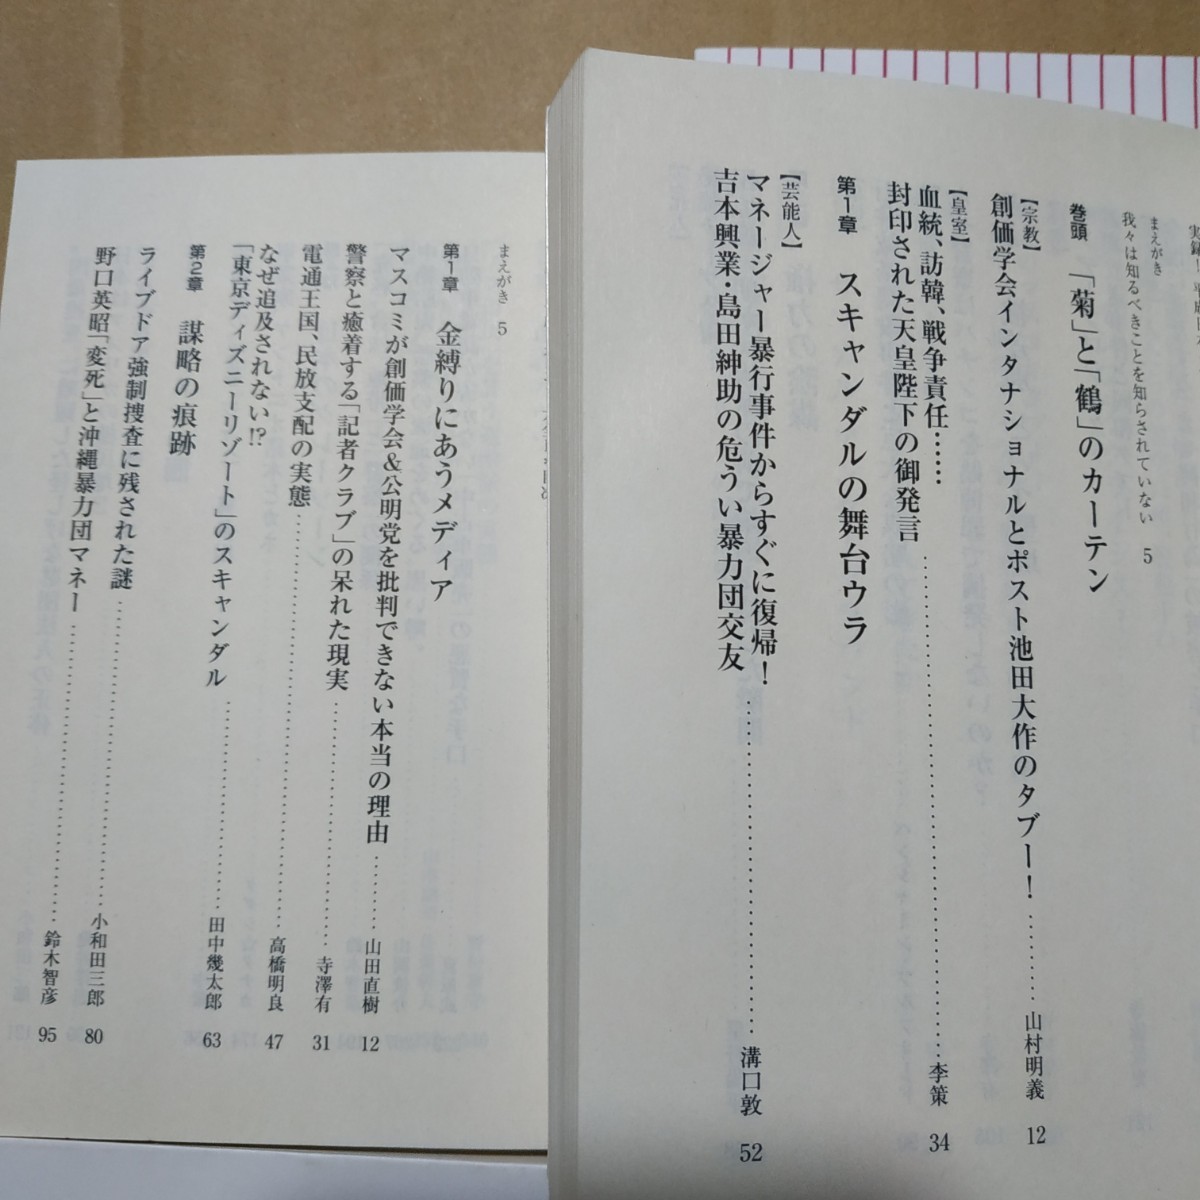 まえがき
我々は知るべきことを知らされていない 5
巻頭 「菊」と「鶴」のカーテン
【宗教】
創価学会インタナショナルとポスト池田大作のタブー! 山村明義 12
【皇室】
血統、訪韓、戦争責任……
封印された天皇陛下の御発言 李策 34
第1章 スキャンダルの舞台ウラ
【芸能人】
マネージャー暴行事件からすぐに復帰!
吉本興業・島田紳助の危うい暴力団交友 溝口敦 52
まえがき 5
第1章 金縛りにあうメディア
マスコミが創価学会&公明党を批判できない本当の理由 山田直樹 12
警察と癒着する「記者クラブ」の呆れた現実 寺澤有 31
電通王国、民放支配の実態 高橋明良 47
なぜ追及されない!?
「東京ディズニーリゾート」のスキャンダル 田中幾太郎 63
第2章 謀略の痕跡
ライブドア強制捜査に残された謎 小和田三郎 80
野口英昭「変死」と沖縄暴力団マネー 鈴木智彦 95